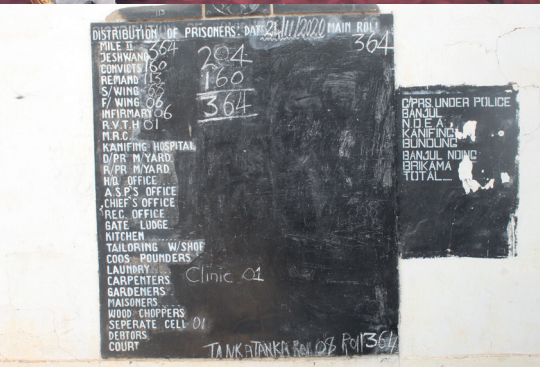 DISTRIBUTION OF PRISONERS: DAT 24/11/2020 MAIN ROLL
364
MILE II 364
JESHWANG
CONVICTS 160
REMAND 113
S/WING
F/WING 06
INFIRMARY 06
R.V.T.H 01
M.R.C
KANIFING HOSPITAL
O/PR M/YARD
R/PR M/YARD
H/Q OFFICE
A.S.P'S OFFICE
CHIEF'S OFFICE
REC. OFFICE
GATE LODGE
KITCHEN
TAILORING W/SHOP
COOS POUNDERS
LAUNDRY
CARPENTERS
GARDENERS
MAISONERS
WOOD CHOPPERS
SEPERATE CELL 01
DEBTORS
COURT
204
160
364
Clinic 01
TANKATANKA Roll 08 Roll 364
C/PRS UNDER POLICE
BANJUL
N.D.E.A
KANIFING
BUNDUNG
BANJUL NDING
BRIKAMA
TOTAL